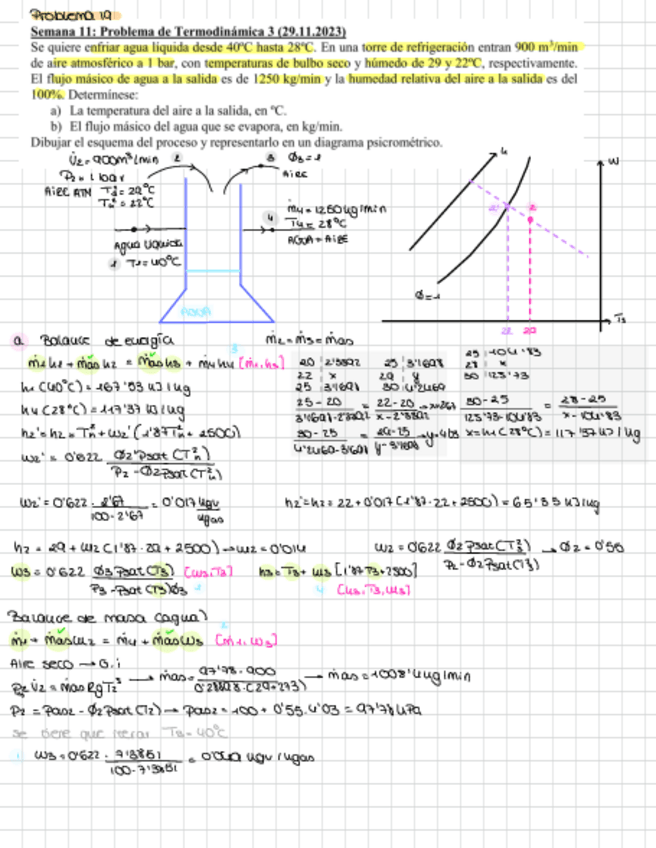 Problema 19
Semana 11: Problema de Termodinámica 3 (29.11.2023)
Se quiere enfriar agua líquida desde 40ºC hasta 28ºC. En una torre de refrigeración entran 900 m³/min
de aire atmosférico a 1 bar, con temperaturas de bulbo seco y húmedo de 29 y 22ºC, respectivamente.
El flujo másico de agua a la salida es de 1250 kg/min y la humedad relativa del aire a la salida es del
100%. Determínese:
a) La temperatura del aire a la salida, en ºC.
b) El flujo másico del agua que se evapora, en kg/min.
Dibujar el esquema del proceso y representarlo en un diagrama psicrométrico.
V̇2 = 900m³/min 2
P2 = 1 bar
AIRE ATM
3 Φ3 = 1
AIRE
4 ṁ4 = 1250 kg/min
T4 = 28°C
AGUA + AIRE
Agua líquida
1 T1 = 40°C
AGUA
h
W
Φ=1
2
22 29
a Balance de energía ṁ2 = ṁ3 = ṁas
ṁ1h1 + ṁas h2 = ṁas h3 + ṁ4h4 [ṁ1, h3]
h1 (40°C) = 167'53 kJ/kg
h4 (28°C) = 117'37 kJ/kg
20 | 2'3392
22 | x
25 | 3'1698
25 | 3'1698
29 | y
30 | 4'2469
25 | 104'83
28 | x
30 | 125'73
x = h4 (28°C) = 117'37 kJ/kg
w2' = 0'622 · 2'67 / 100 - 2'67 = 0'017 kgv / kgas
h2' = h2 = 22 + 0'017 (1'87·22 + 2500) = 65'35 kJ/kg
h2 = 29 + w2 (1'87·29 + 2500) → w2 = 0'014
w2 = 0'622 Φ2 Psat (T2) / P2 - Φ2 Psat (T2) → Φ2 = 0'55
w3 = 0'622 Φ3 Psat (T3) / P3 - Psat (T3) Φ3 [w3, T3]
h3 = T3 + w3 [1'87 T3 + 2500]
[h3, T3, w3]
Balance de masa (agua)
ṁ1 + ṁas w2 = ṁ4 + ṁas w3 [ṁ1, w3]
Aire seco → G.i
ṁas = 97'78 · 900 / → ṁas = 1008'4 kg/min
→ Pas2 = 100 + 0'55 · 4'03 = 97'78 kPa
se tiene que iterar T3 = 40°C
w3 = 0'622 · 7'3851 / 100 - 7'3851 =